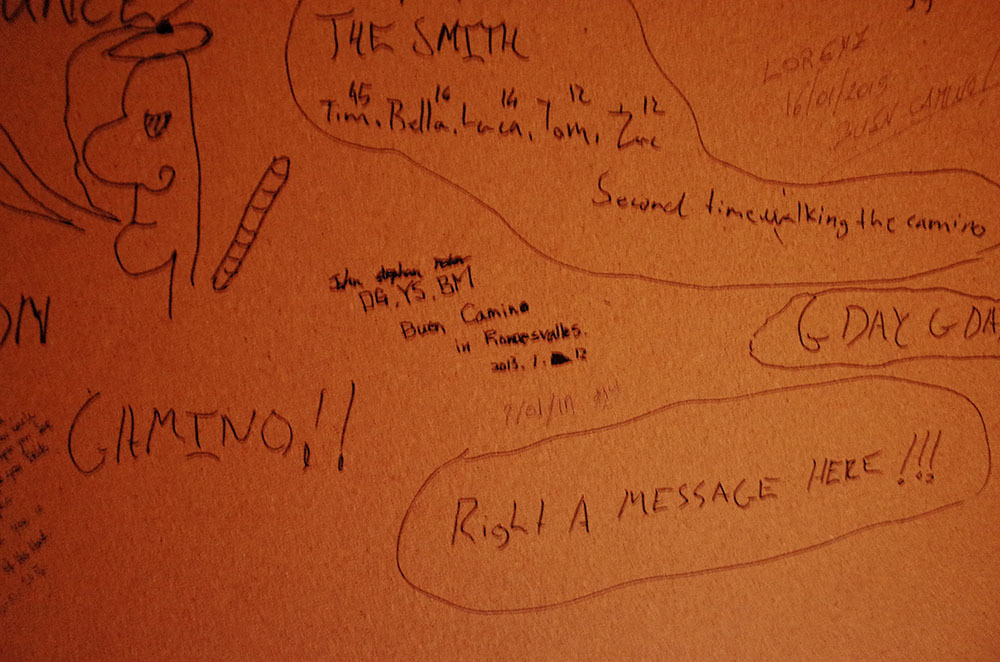 THE SMITH
45 16 14 12 12
Tim, Bella, Luca, Tom, + Zac
LORENZ
16/01/2015
BUEN CAMINO
Second time walking the camino
John stephan
DG, YS, BM
Buen Camino
in Roncesvalles.
2013. 1. 12
ON
G DAY G DA
CAMINO!!
Right A MESSAGE HERE!!!